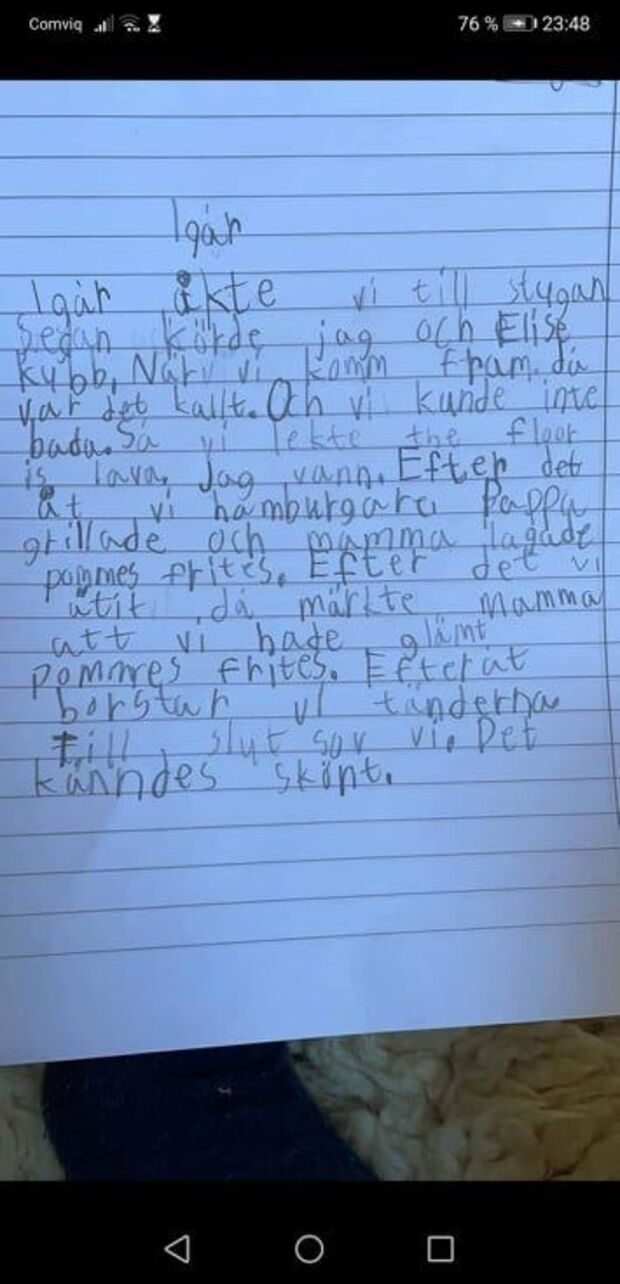 Comviq
76 % 23:48
Igår
Igår åkte vi till stugan
Segan körde jag och Elise
kubb, När vi komm fram. då
var det kallt. Och vi kunde inte
bada. Så vi lekte the floor
is lava, Jag vann. Efter det
åt vi hamburgare. Pappa
grillade och mamma lagade
pommes frites. Efter det vi
ätit då märkte Mamma
att vi hade glämt
pommes frites. Efteråt
borstar vi tänderna
till slut sov vi. Det
känndes skönt.